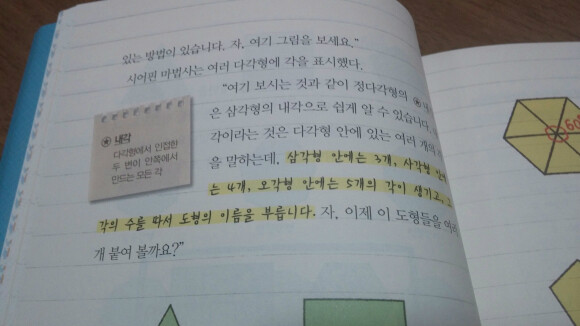 있는 방법이 있습니다. 자, 여기 그림을 보세요."
시어핀 마법사는 여러 다각형에 각을 표시했다.
"여기 보시는 것과 같이 정다각형의
은 삼각형의 내각으로 쉽게 알 수 있습니다.
각이라는 것은 다각형 안에 있는 여러 개의
을 말하는데, 삼각형 안에는 3개, 사각형
는 4개, 오각형 안에는 5개의 각이 생기고,
각의 수를 따서 도형의 이름을 부릅니다. 자, 이제 이 도형들을 여러
개 붙여 볼까요?"
내각
다각형에서 인접한
두 변이 안쪽에서
만드는 모든 각
60